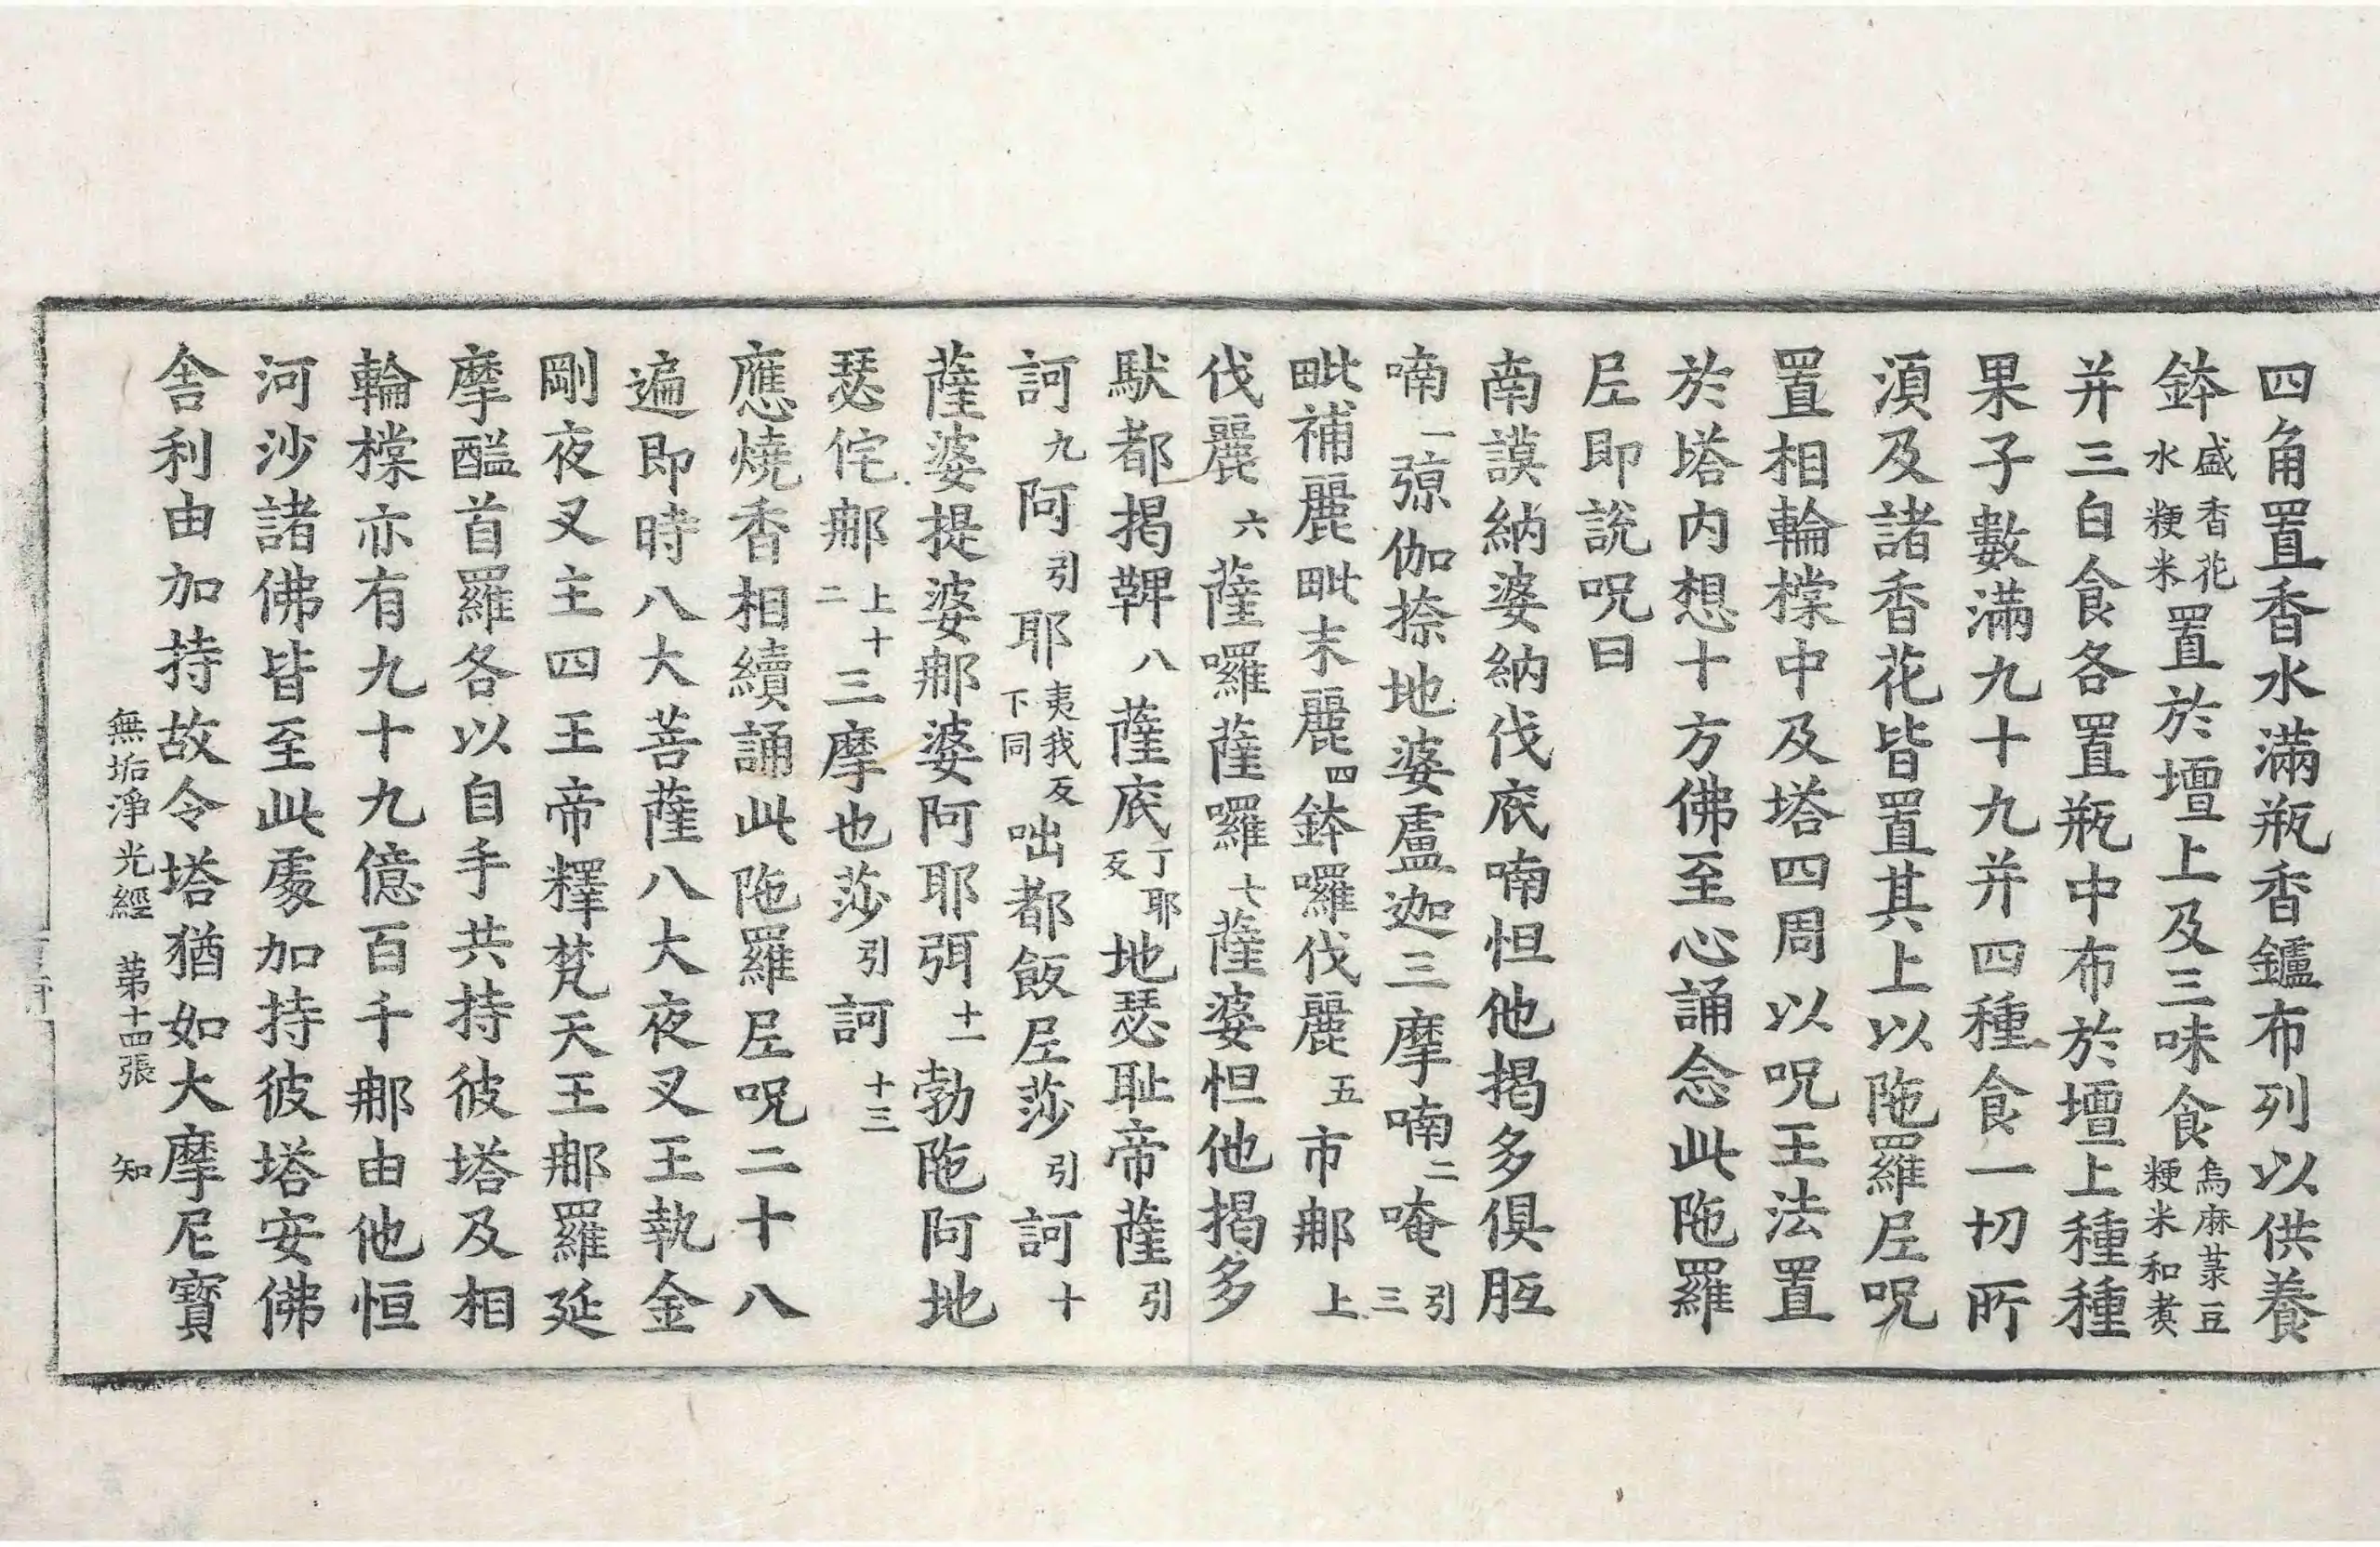 四角置香水滿瓶香鑪布列以供養
鉢盛香花水粳米置於壇上及三味食烏麻菉豆粳米和煑
并三白食各置瓶中布於壇上種種
果子數滿九十九并四種食一切所
湏及諸香花皆置其上以陁羅𡰱呪
置相輪樘中及塔四周以呪王法置
於塔内想十方佛至心誦念此陁羅
𡰱即說呪曰
南謨納婆納伐底喃怛他揭多俱胝
喃一弶伽捺地婆盧迦三摩喃二唵引三
毗補麗毗末麗四鉢囉伐麗五市郍上
伐麗六薩囉薩囉七薩婆怛他揭多
馱都揭鞞八薩底丁耶反地瑟耻帝薩引
訶九阿引耶夷我反下同咄都飯𡰱莎引訶十
薩婆提婆郍婆阿耶弭十一勃陁阿地
瑟侘郍上十二三摩也莎引訶十三
應燒香相續誦此陁羅𡰱呪二十八
遍即時八大菩薩八大夜叉王執金
剛夜叉主四王帝釋梵天王郍羅延
摩醯首羅各以自手共持彼塔及相
輪樘亦有九十九億百千郍由他恒
河沙諸佛皆至此處加持彼塔安佛
舍利由加持故令塔猶如大摩尼寶
無垢淨光經 第十四張 知